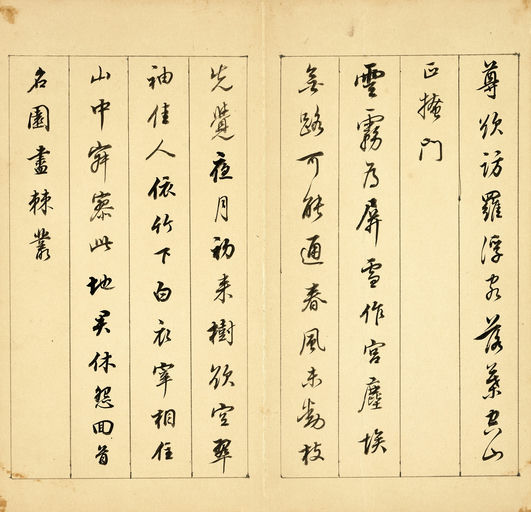 尊欲訪羅浮客落葉空山
正掩門
雲霧為屏雪作宮塵埃
無路可能通春風未動枝
先覺夜月初来樹欲空翠
袖佳人依竹下白衣宰相住
山中寂寥此地君休怨回首
名園盡棘叢